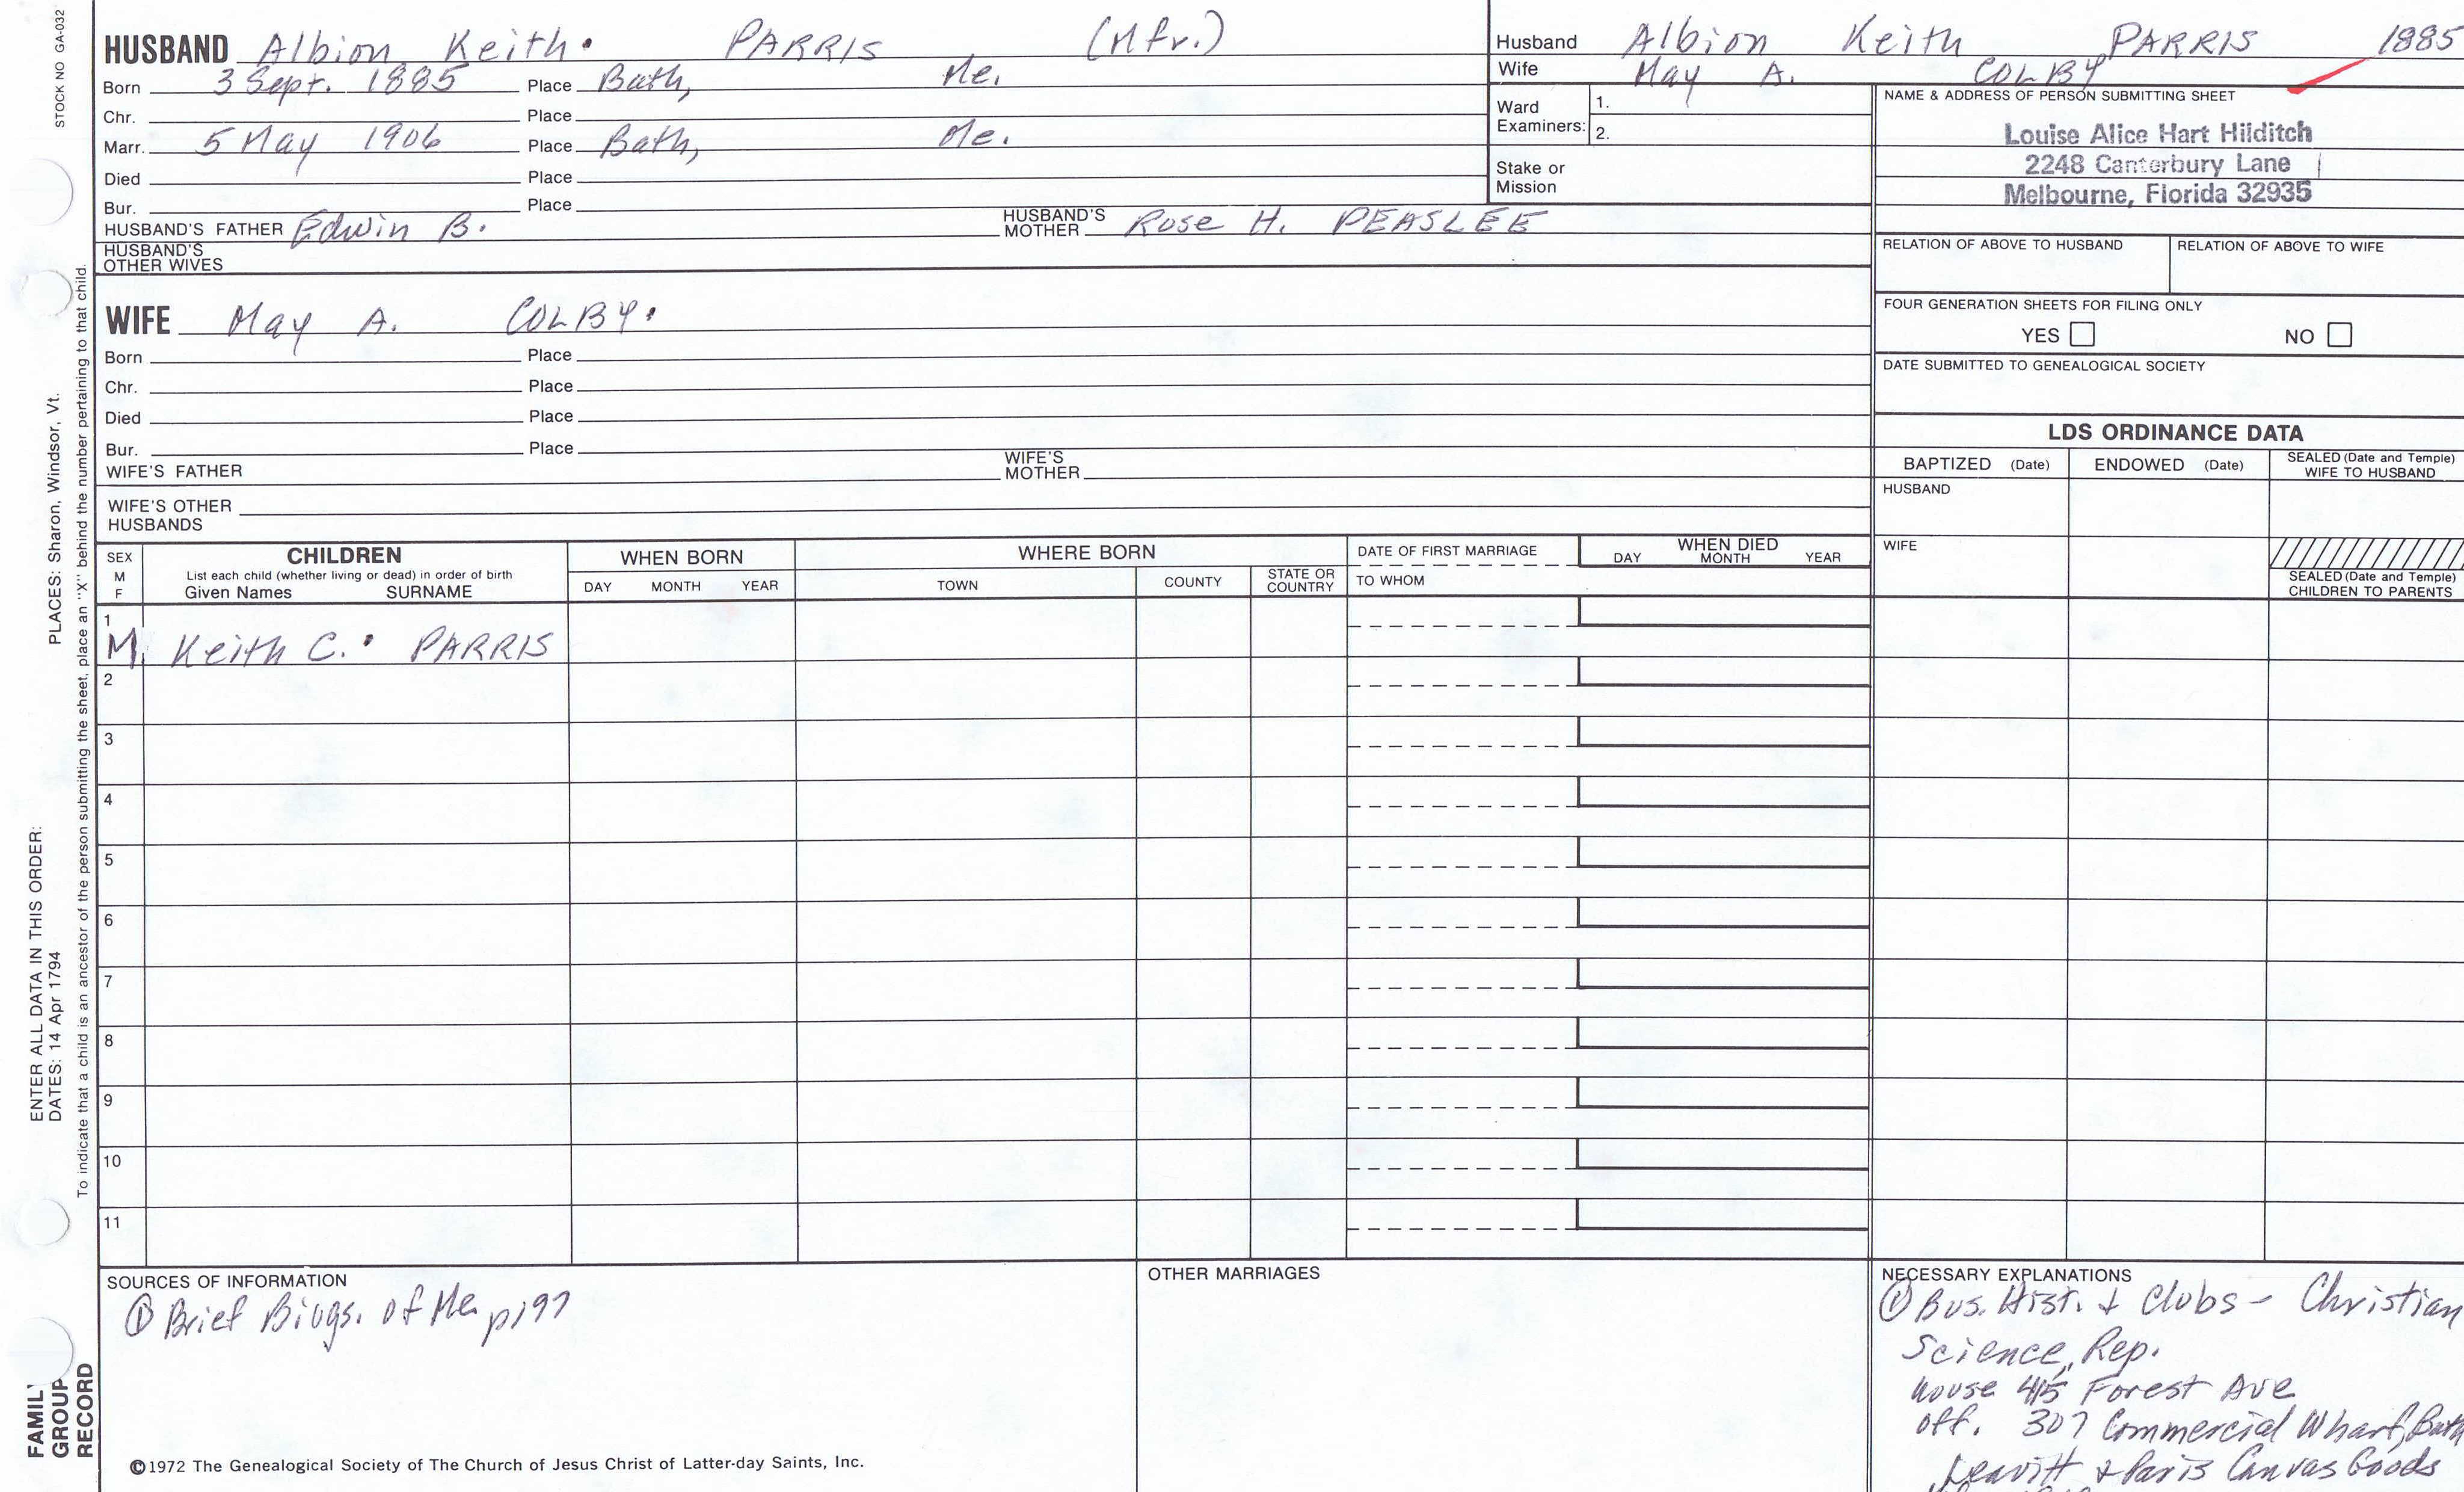 STOCK NO GA-032
HUSBAND Albion Keith. PARRIS (Mfr.)
Born 3 Sept. 1885 Place Bath, Me.
Chr. Place
Marr. 5 May 1906 Place Bath, Me.
Died Place
Bur. Place
HUSBAND'S FATHER Edwin B. HUSBAND'S MOTHER Rose H. PEASLEE
HUSBAND'S OTHER WIVES
WIFE May A. COLBY.
Born Place
Chr. Place
Died Place
Bur. Place
WIFE'S FATHER WIFE'S MOTHER
WIFE'S OTHER HUSBANDS
Husband Albion Keith PARRIS 1885
Wife May A. COLBY
Ward Examiners: 1.
2.
Stake or Mission
NAME & ADDRESS OF PERSON SUBMITTING SHEET
Louise Alice Hart Hilditch
2248 Canterbury Lane
Melbourne, Florida 32935
RELATION OF ABOVE TO HUSBAND RELATION OF ABOVE TO WIFE
FOUR GENERATION SHEETS FOR FILING ONLY
YES NO
DATE SUBMITTED TO GENEALOGICAL SOCIETY
LDS ORDINANCE DATA
BAPTIZED (Date) ENDOWED (Date) SEALED (Date and Temple) WIFE TO HUSBAND
HUSBAND
WIFE
SEALED (Date and Temple) CHILDREN TO PARENTS
SEX M F
CHILDREN
List each child (whether living or dead) in order of birth
Given Names SURNAME
WHEN BORN
DAY MONTH YEAR
WHERE BORN
TOWN COUNTY STATE OR COUNTRY
DATE OF FIRST MARRIAGE
TO WHOM
WHEN DIED
DAY MONTH YEAR
1
M. Keith C. PARRIS
2
3
4
5
6
7
8
9
10
11
SOURCES OF INFORMATION
① Brief Biogs. of Me. p197
OTHER MARRIAGES
NECESSARY EXPLANATIONS
① Bus. Hist. + Clubs - Christian
Science, Rep.
house 415 Forest Ave
Off. 307 Commercial Wharf, Bath
Leavitt & Paris Canvas Goods
©1972 The Genealogical Society of The Church of Jesus Christ of Latter-day Saints, Inc.
ENTER ALL DATA IN THIS ORDER:
DATES: 14 Apr 1794 PLACES: Sharon, Windsor, Vt.
To indicate that a child is an ancestor of the person submitting the sheet, place an "X" behind the number pertaining to that child.
FAMILY
GROUP
RECORD